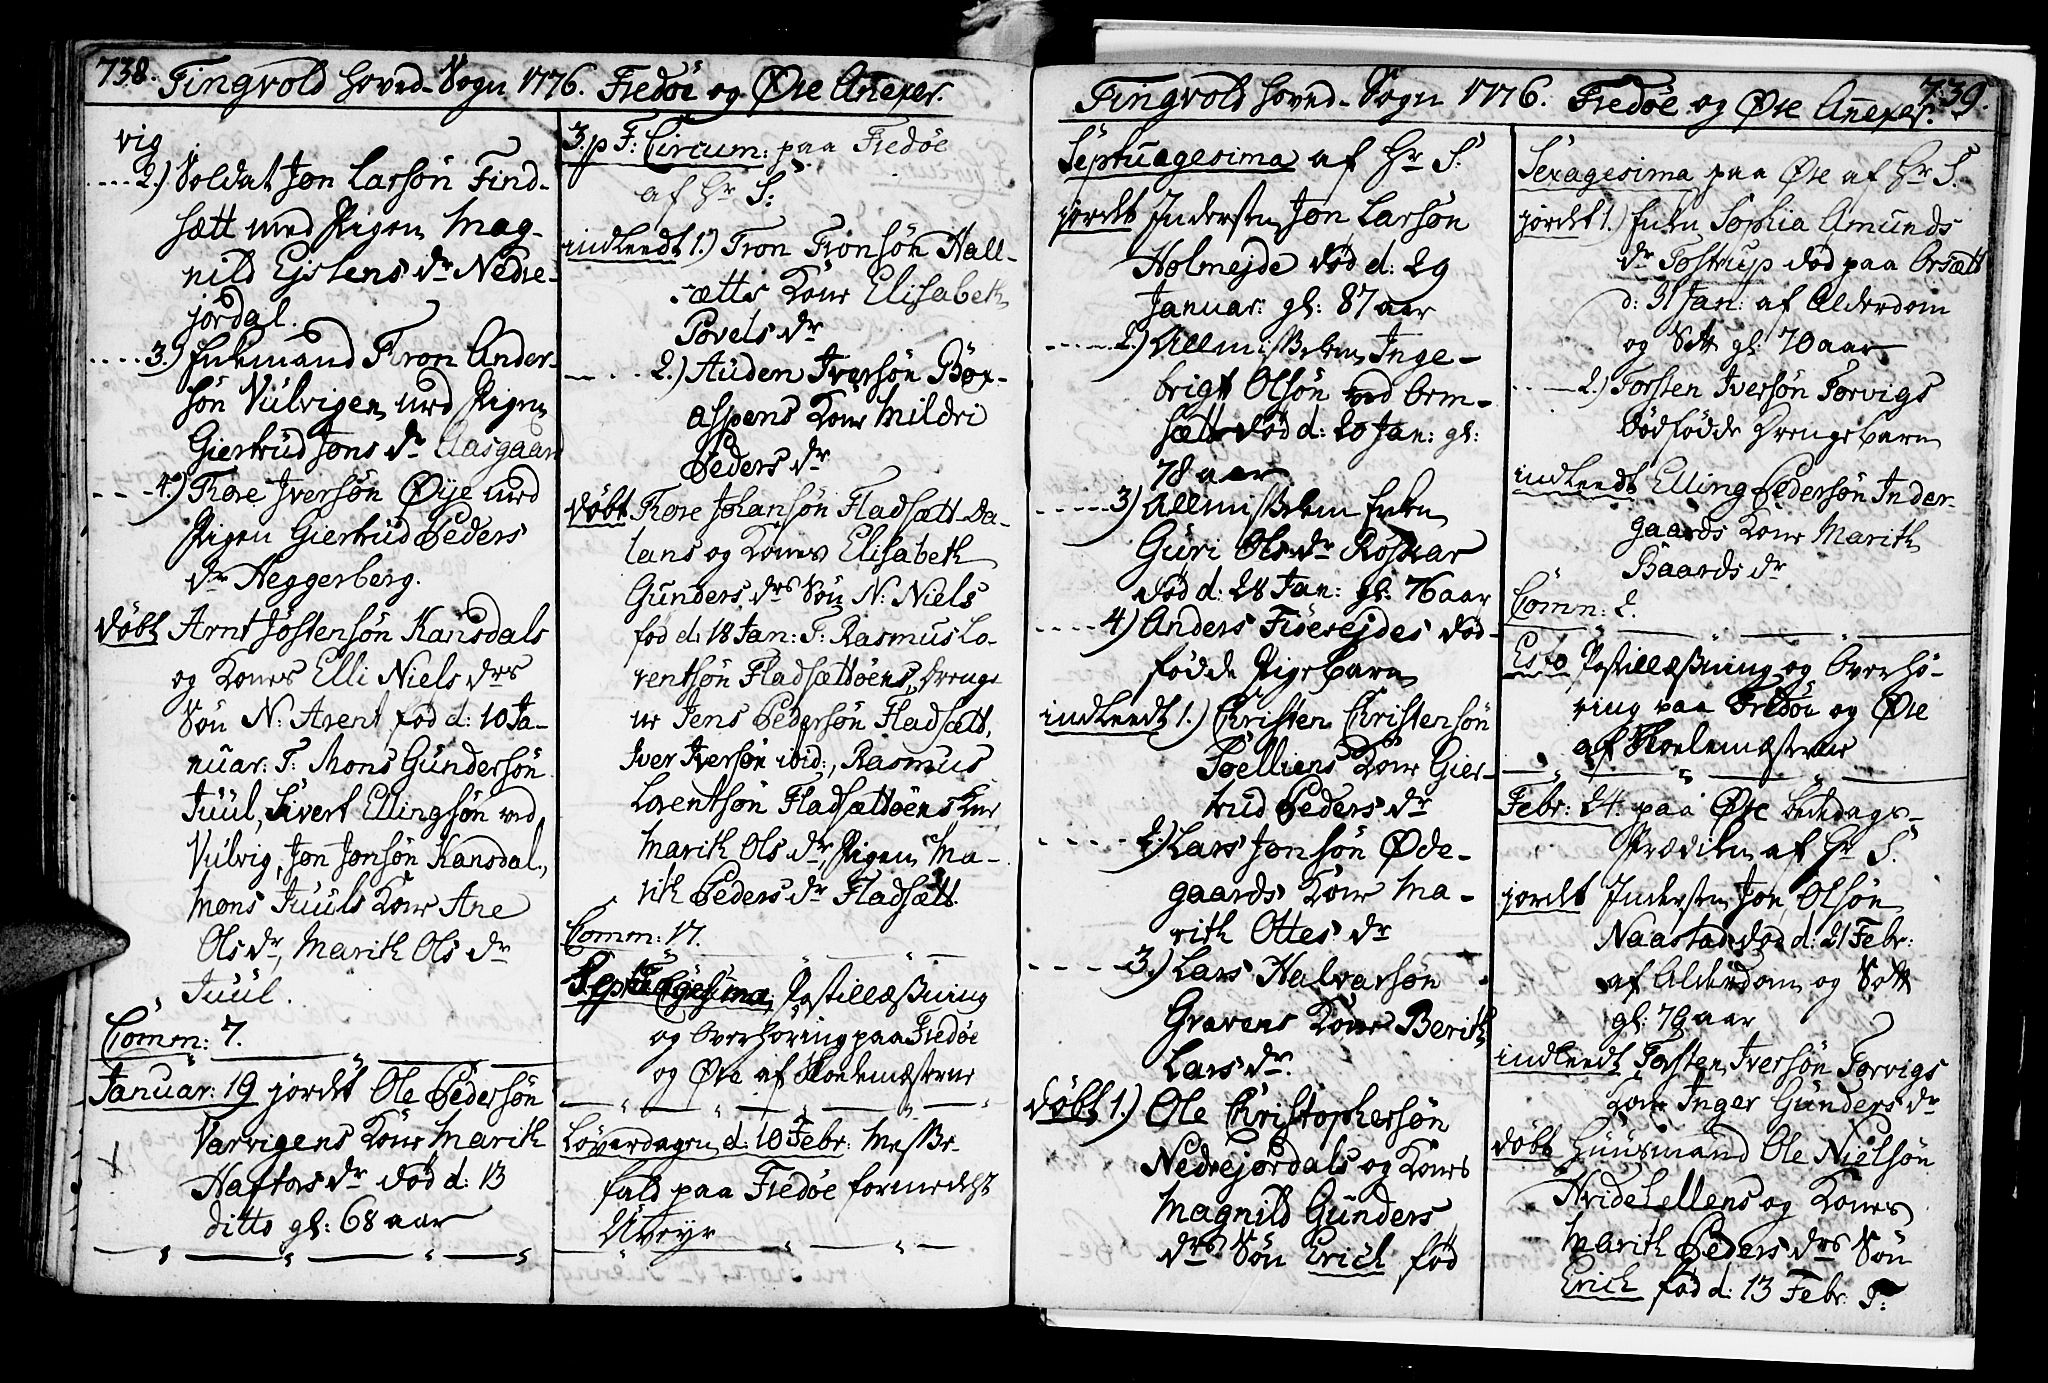 738. Tingvold Hoved-Sogn 1776. Fredøe og Øre Anexer.
vig.
2.) Soldat Jon Larsøn Find-
sætt med Pigen Mag-
nild Ejstens dr Nedre-
jordal.
3.) Enkemand Tron Ander-
søn Vulvigen med Pigen
Giertrud Jons dr Aasgaard
4.) Tore Iversøn Øye med
Pigen Giertrud Peders
dr Heggerberg.
døbt Arnt Jostensøn Kansdals
og Kones Elli Niels drs
Søn N: Arent fød d: 10 Ja-
nuar: T: Mons Gundersøn
Juul, Sivert Ellingsøn ved
Vulvig, Jon Jonsøn Kansdal,
Mons Juuls Kone Ane
Ols dr, Marith Ols dr
Juul.
Comm: 7.
Januar: 19 jordet Ole Pedersøn
Varvigens Kone Marith
Haftors dr død d: 13
ditto gl: 68 aar
3. p F: Circum: paa Fredøe
af Hr S:
indleedt 1.) Tron Tronsøn Hall-
sætts Kone Elisabeth
Povels dr
2.) Auden Iversøn Bøx-
asspens Kone Mildri
Peders dr
døbt Tore Johansøn Fladsætt Da-
lans og Kones Elisabeth
Gunders drs Søn N: Niels
fød d: 18 Jan: T: Rasmus Lo-
rentsøn Fladsættøens, Drenge
ne Jens Pedersøn Fladsætt,
Iver Iversøn ibid:, Rasmus
Lorentsøn Fladsættøens Kone
Marith Ols dr, Pigen Ma-
rith Peders dr Fladsætt
Comm: 17.
Septuagesima, Postillæssning
og Overhøring paa Fredøe
og Øre af Skolemæsterne
Løverdagen d: 10 Febr: Messe-
fald paa Fredøe formedelst
Uveyr
Tingvold Hoved-Sogn 1776. Fredøe og Øre Anexer. 739.
Septuagesima af Hr S:
jordet Indersten Jon Larsøn
Holmejde død d: 29
Januar: gl: 87 aar
2.) Allmisselem Inge-
brigt Olsøn ved Orm-
sætt død d: 20 Jan: gl:
78 aar
3.) Allmisselem Enken
Guri Ols dr
død d: 28 Jan: gl: 76 aar
4.) Anders død-
fødde Pige Barn
indleedt 1.) Christen Christensøn
Kone Gier-
trud Peders dr
2.) Lars Jonsøn Øde-
gaards Kone Ma-
rith Ottes dr
3.) Lars Halvarsøn
Gravens Kone Berith
Lars dr.
døbt 1.) Ole Christophersøn
Nedrejordals og Kones
Magnild Gunders
drs Søn Erich fød
Sexagesima paa Øre af Hr S.
jordet 1.) Enken Sophia Amunds
dr Tostrup død paa Orsætt
d: 31 Jan: af Alderdom
og Sott gl: 70 aar
2.) Torsten Iversøn Torvigs
dødfødde Drenge Barn
indleedt Elling Pedersøn Inder-
gaards Kone Marith
Baards dr
Comm: 2.
Esto Postillæssning og Overhø-
ring paa Fredøe og Øre
af Skolemæsterne
Febr: 24. paa Øre Bededags-
Prædiken af Hr S.
jordet Indersten Jon Olsøn
Naastad død d: 21 Febr:
af Alderdom og Sott
gl: 79 aar
indleedt Torsten Iversøn Torvigs
Kone Inger Gunders dr
døbt Huusmand Ole Nielsøn
Hvidelellens og Kones
Marith Peders drs Søn
Erich fød d: 13 Febr: T: